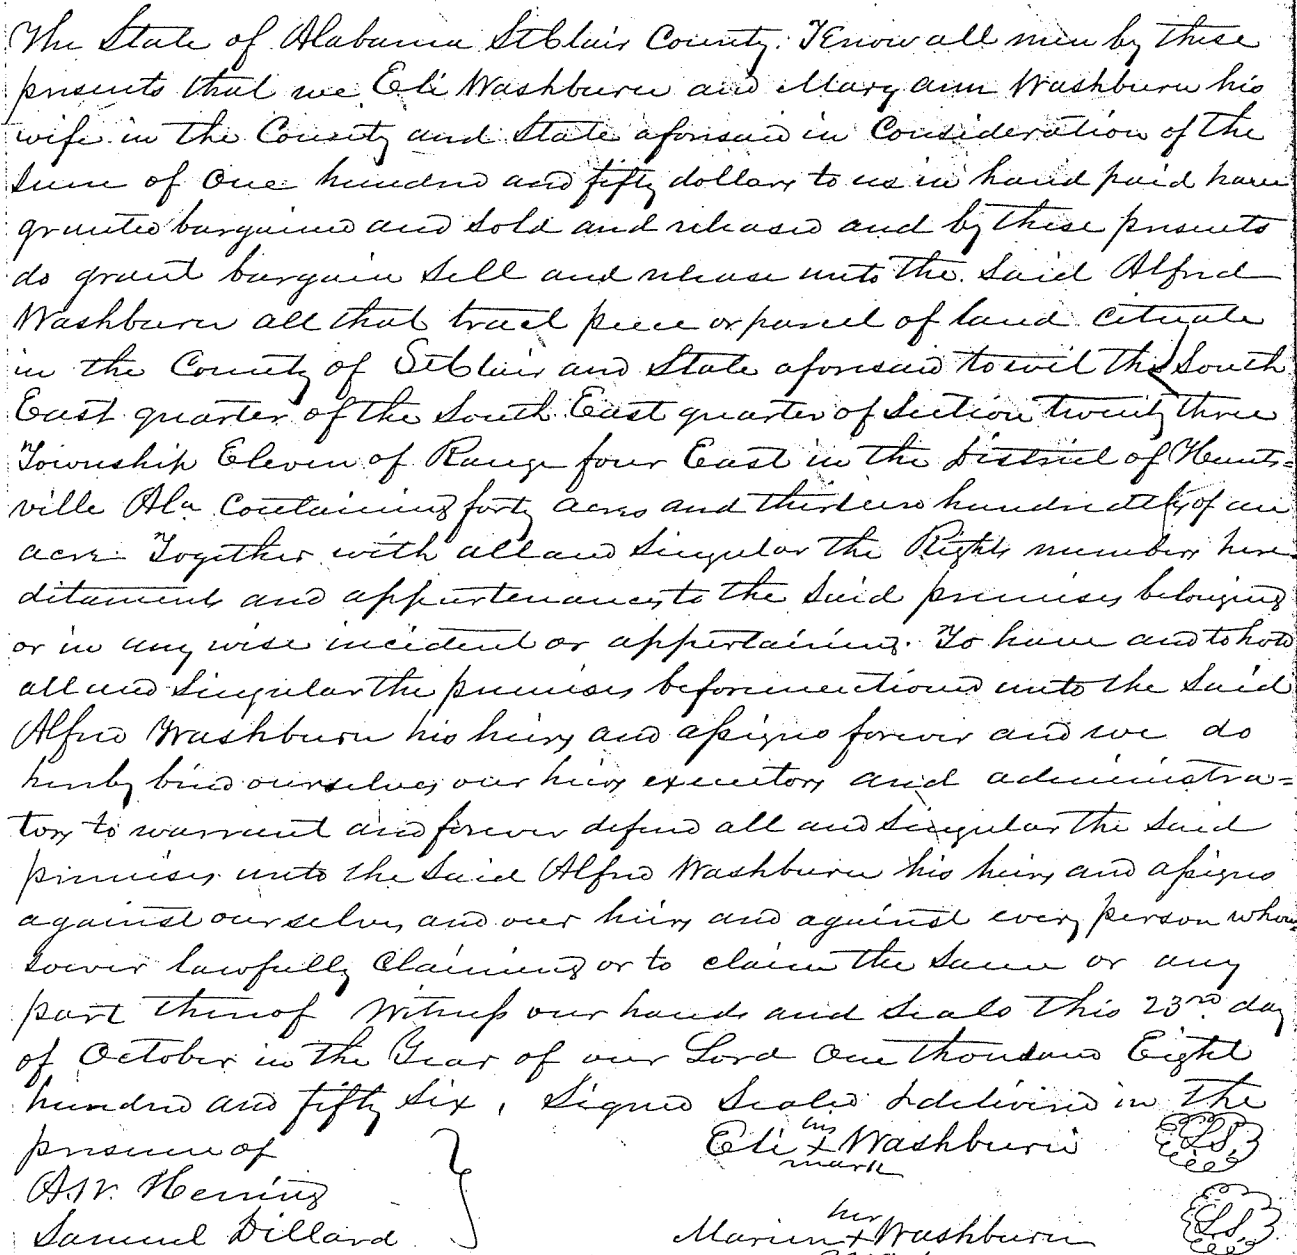 The State of Alabama StClair County. Know all men by these
presents that we Eli Washburn and Mary ann Washburn his
wife in the County and State aforesaid in Consideration of the
Sum of One hundred and fifty dollars to us in hand paid have
granted bargained and Sold and released and by these presents
do grant bargain Sell and release unto the Said Alfred
Washburn all that tract piece or parcel of land Cituate
in the County of StClair and State aforesaid to wit the South
East quarter of the South East quarter of Section twenty three
Township Eleven of Range four East in the District of Hunts=
ville Ala Containing forty acres and thirteen hundredths of an
acre Together with all and Singular the Rights members here
ditaments and appurtenances to the Said premises belonging
or in any wise incident or appertaining. To have and to hold
all and Singular the premises beforementioned unto the Said
Alfred Washburn his heirs and assigns forever and we do
hereby bind ourselves our heirs executors and administra=
tors to warrant and forever defend all and Singular the Said
premises unto the Said Alfred Washburn his heirs and assigns
against ourselves and our heirs and against every person whom
soever lawfully Claiming or to claim the Same or any
part thereof Witness our hands and Seals this 23rd day
of October in the Year of our Lord One thousand Eight
hundred and fifty Six, Signed Sealed & delivered in the
presence of
his
Eli x Washburn L.S.
mark
A.W. Herring
her
Samuel Dillard Marion x Washburn L.S.